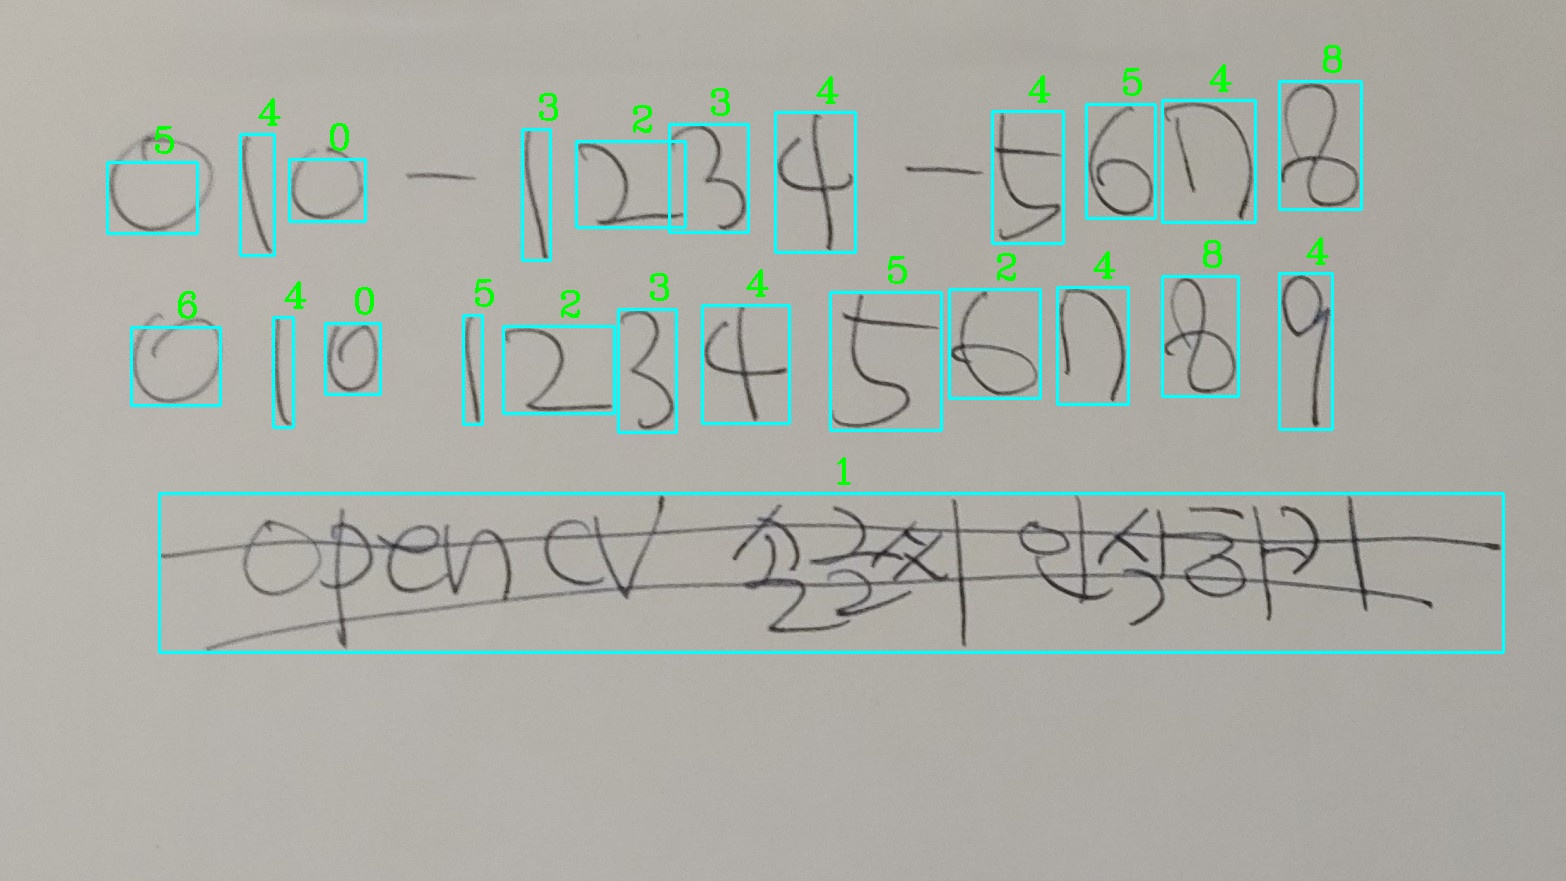 5 4 0 3 2 3 4 4 5 4 8
010 - 1234 - 5678
6 4 0 5 2 3 4 5 2 4 8 4
010 123456789
1
open CV 숫자 인식하기